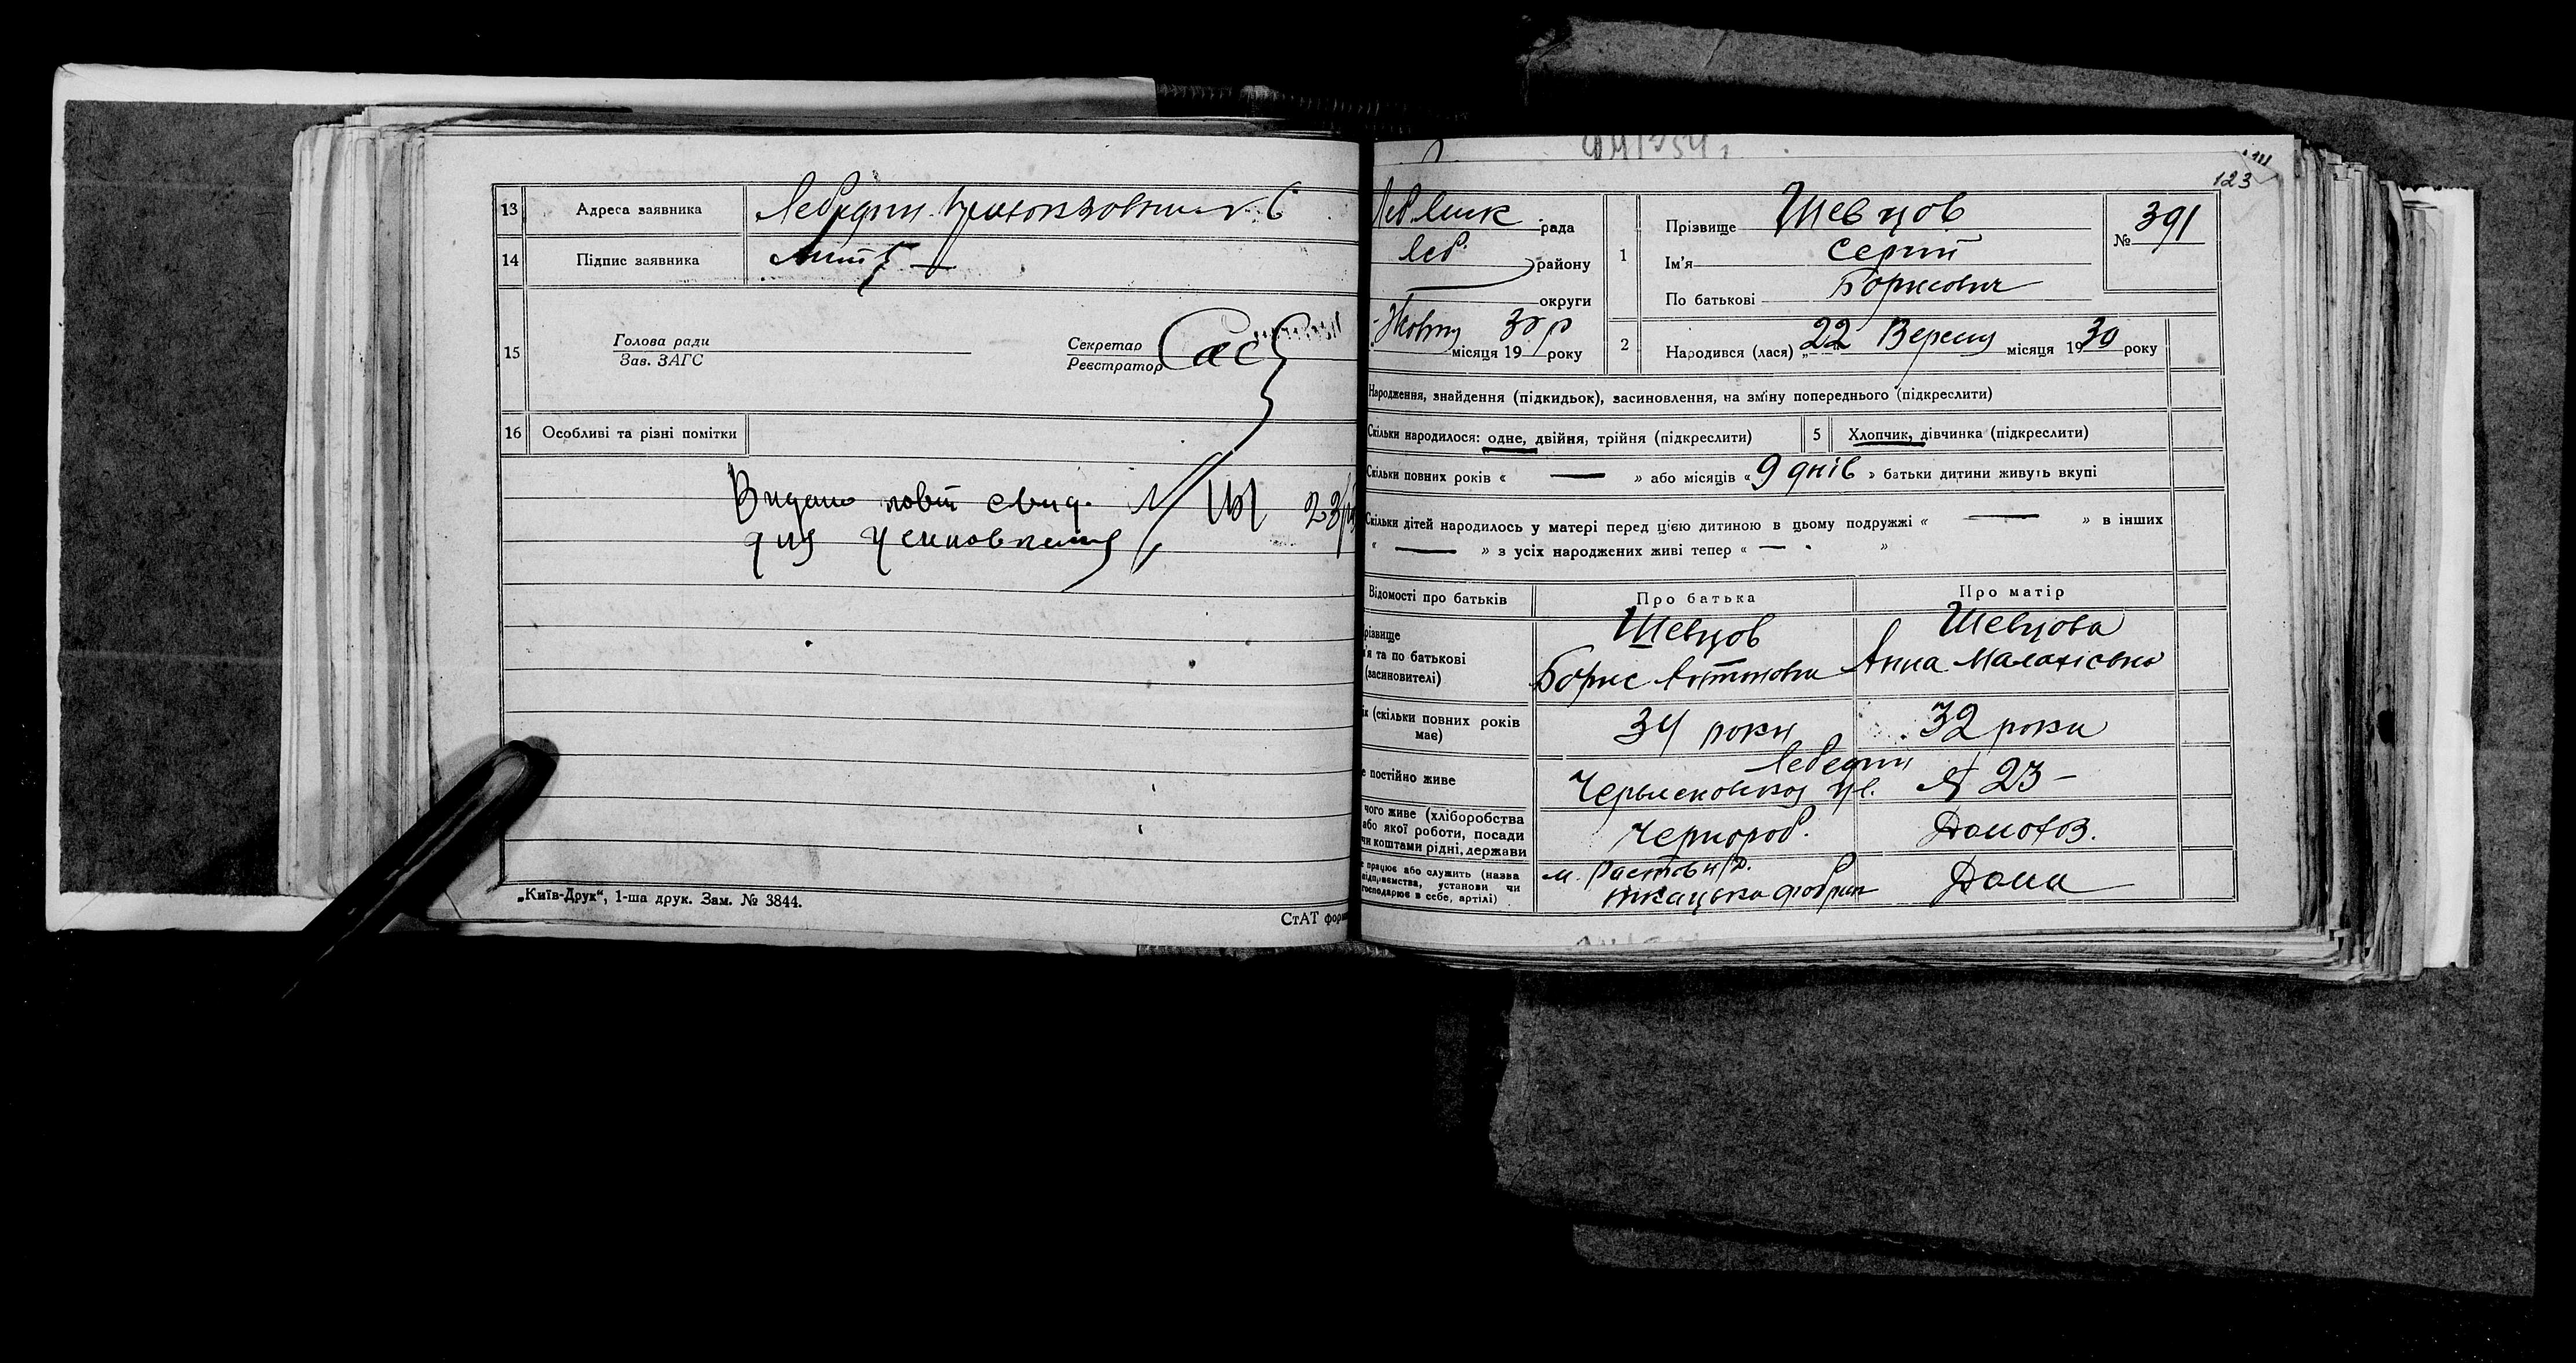 13 Адреса заявника Лебедин
14 Підпис заявника
15 Голова ради
Зав. ЗАГС
Секретар
Реєстратор
16 Особливі та різні помітки
Видано повт свид. № 23
для усиновлення
„Київ-Друк“, 1-ша друк. Зам. № 3844.
СтАТ форм
123
рада
Леб. району
округи
Жовтн 30 р
місяця 19 року
1 Прізвище Шевцов
Ім'я Сергій
По батькові Борисович
№ 391
2 Народився (лася) „22 Вересня місяця 1930 року
Народження, знайдення (підкидьок), засиновлення, на зміну попереднього (підкреслити)
Скільки народилося: одне, двійня, трійня (підкреслити) 5 Хлопчик, дівчинка (підкреслити)
Скільки повних років « — » або місяців « 9 днів » батьки дитини живуть вкупі
Скільки дітей народилось у матері перед цією дитиною в цьому подружжі « — » в інших
« — » з усіх народжених живі тепер « — »
Відомості про батьків Про батька Про матір
різвище Шевцов Шевцова
'я та по батькові Борис Анна
(засиновителі)
ік (скільки повних років має) 34 роки 32 роки
е постійно живе Лебедин
ул. № 23 –
чого живе (хліборобства
або якої роботи, посади
чи коштами рідні, держави Чернороб. Домохоз.
е працює або служить (назва
підприємства, установи чи
господарює в себе, артілі) м. Растов н/Д.
ткацька фабрик Дома